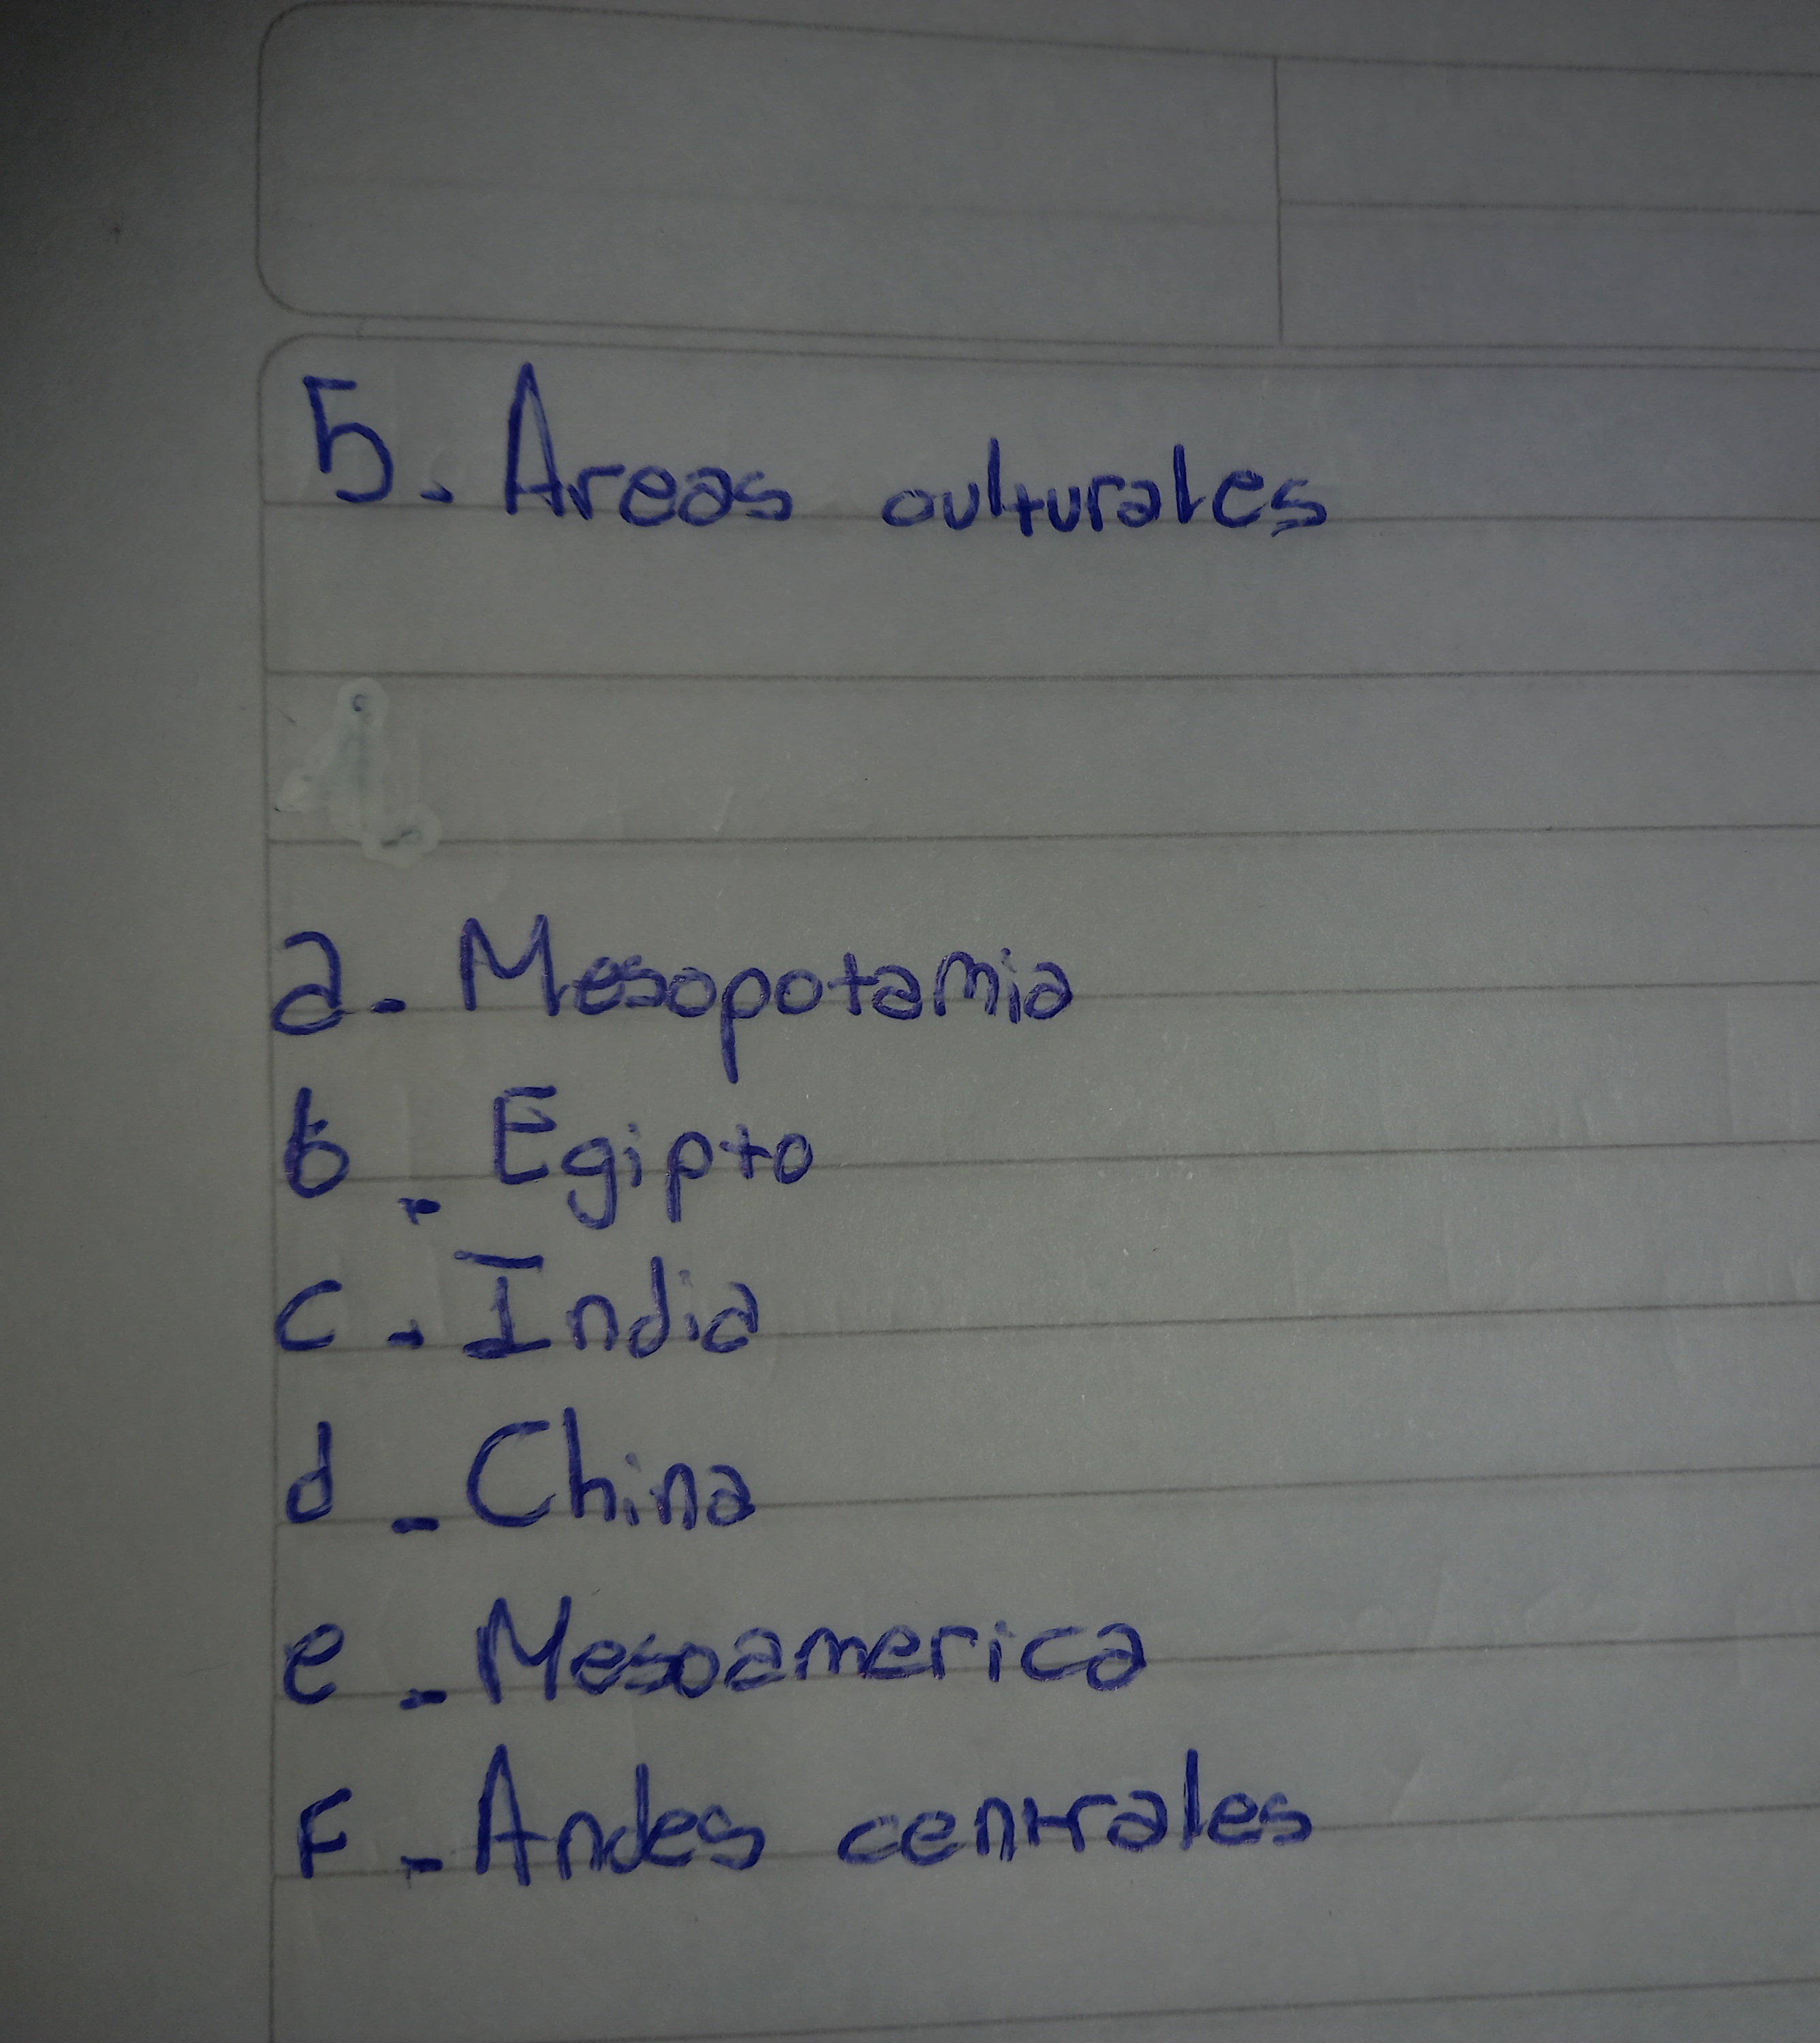 5. Areas culturales
a. Mesopotamia
b. Egipto
c. India
d. China
e. Mesoamerica
F. Andes centrales